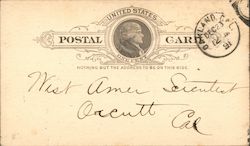 UNITED STATES
POSTAL CARD
ONE CENT
NOTHING BUT THE ADDRESS TO BE ON THIS SIDE.
OAKLAND, CAL.
DEC
12
91
West Amer Scientist
Orcutt
Cal